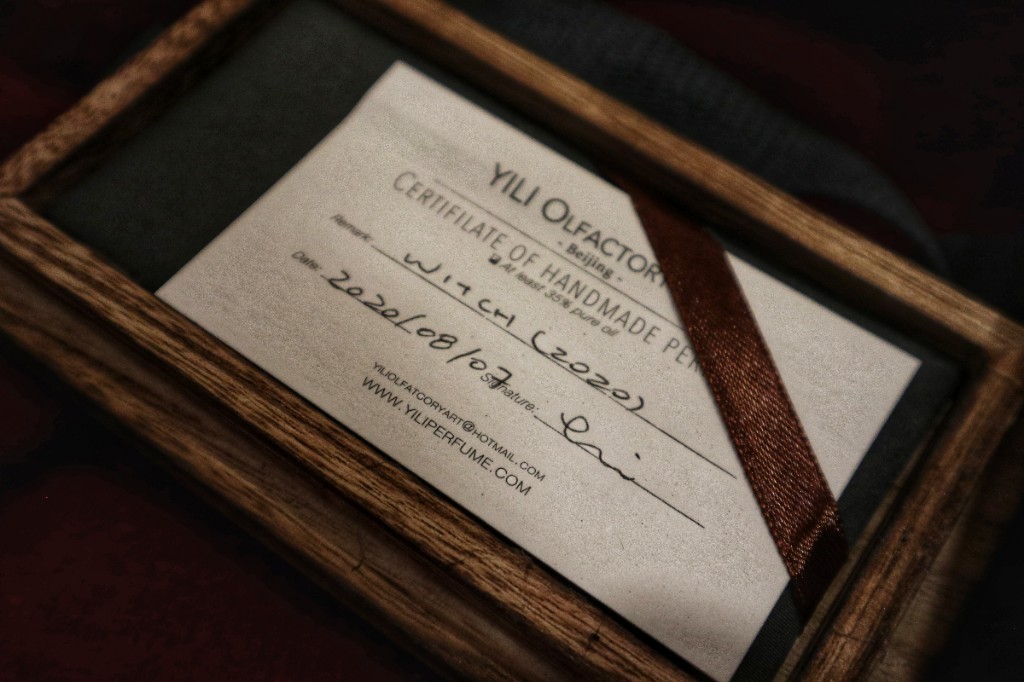 YILI OLFACTORY
- Beijing -
CERTIFILATE OF HANDMADE PER
At least 35% pure oil
Remark: WITCH (2020)
Date: 2020/08/07 Signature:
YILIOLFATCORYART@HOTMAIL.COM
WWW.YILIPERFUME.COM